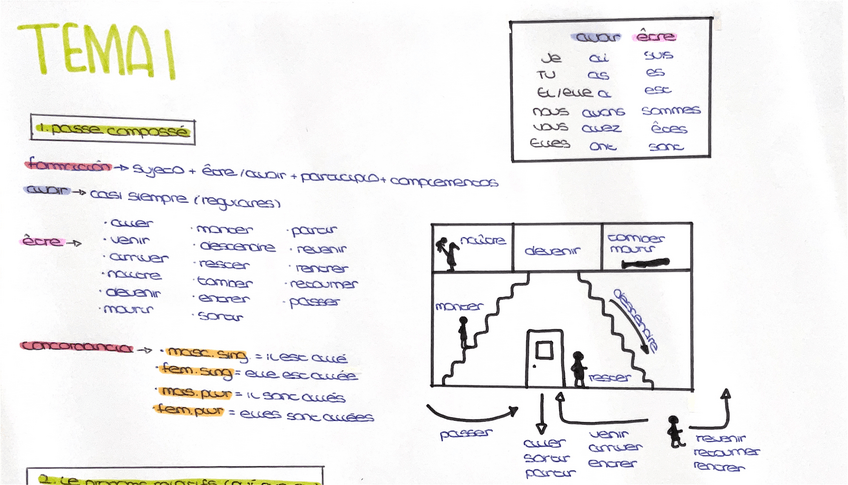 TEMA 1
avoir être
Je ai suis
TU as es
EL/elle a est
nous avons sommes
vous avez êtes
Elles ont sont
1. passe compossé
formación → sujeto + être/avoir + participio + complementos
avoir → casi siempre (regulares)
être →
· aller
· venir
· arriver
· naître
· devenir
· mourir
· monter
· descendre
· rester
· tomber
· entrer
· sortir
· partir
· revenir
· rentrer
· retourner
· passer
concordancia → · masc. sing = il est allé
· fem. sing = elle est allée
· mas. plur = il sont allés
· fem. plur = elles sont allées
naître
devenir
tomber
mourir
monter
descendre
rester
passer
aller
sortir
partir
venir
arriver
entrer
revenir
retourner
rentrer
2. Le pronoms